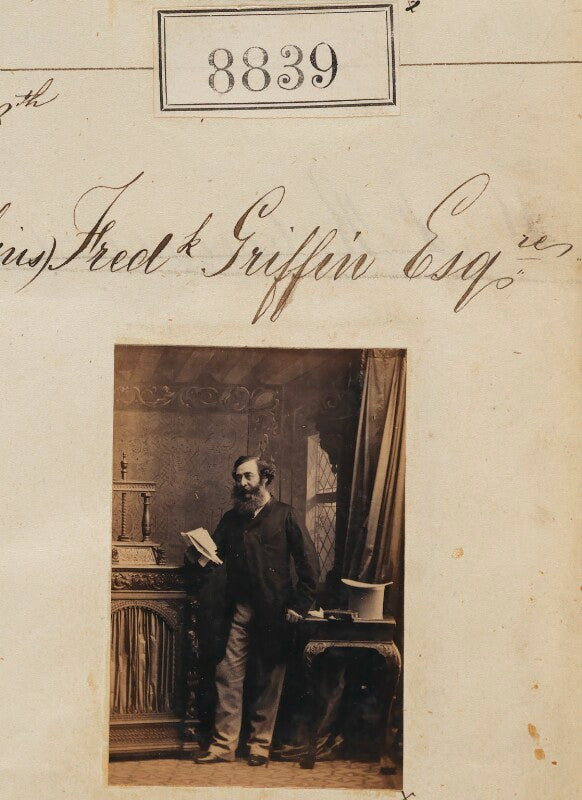 8839
th
Fredk Griffin Esqre